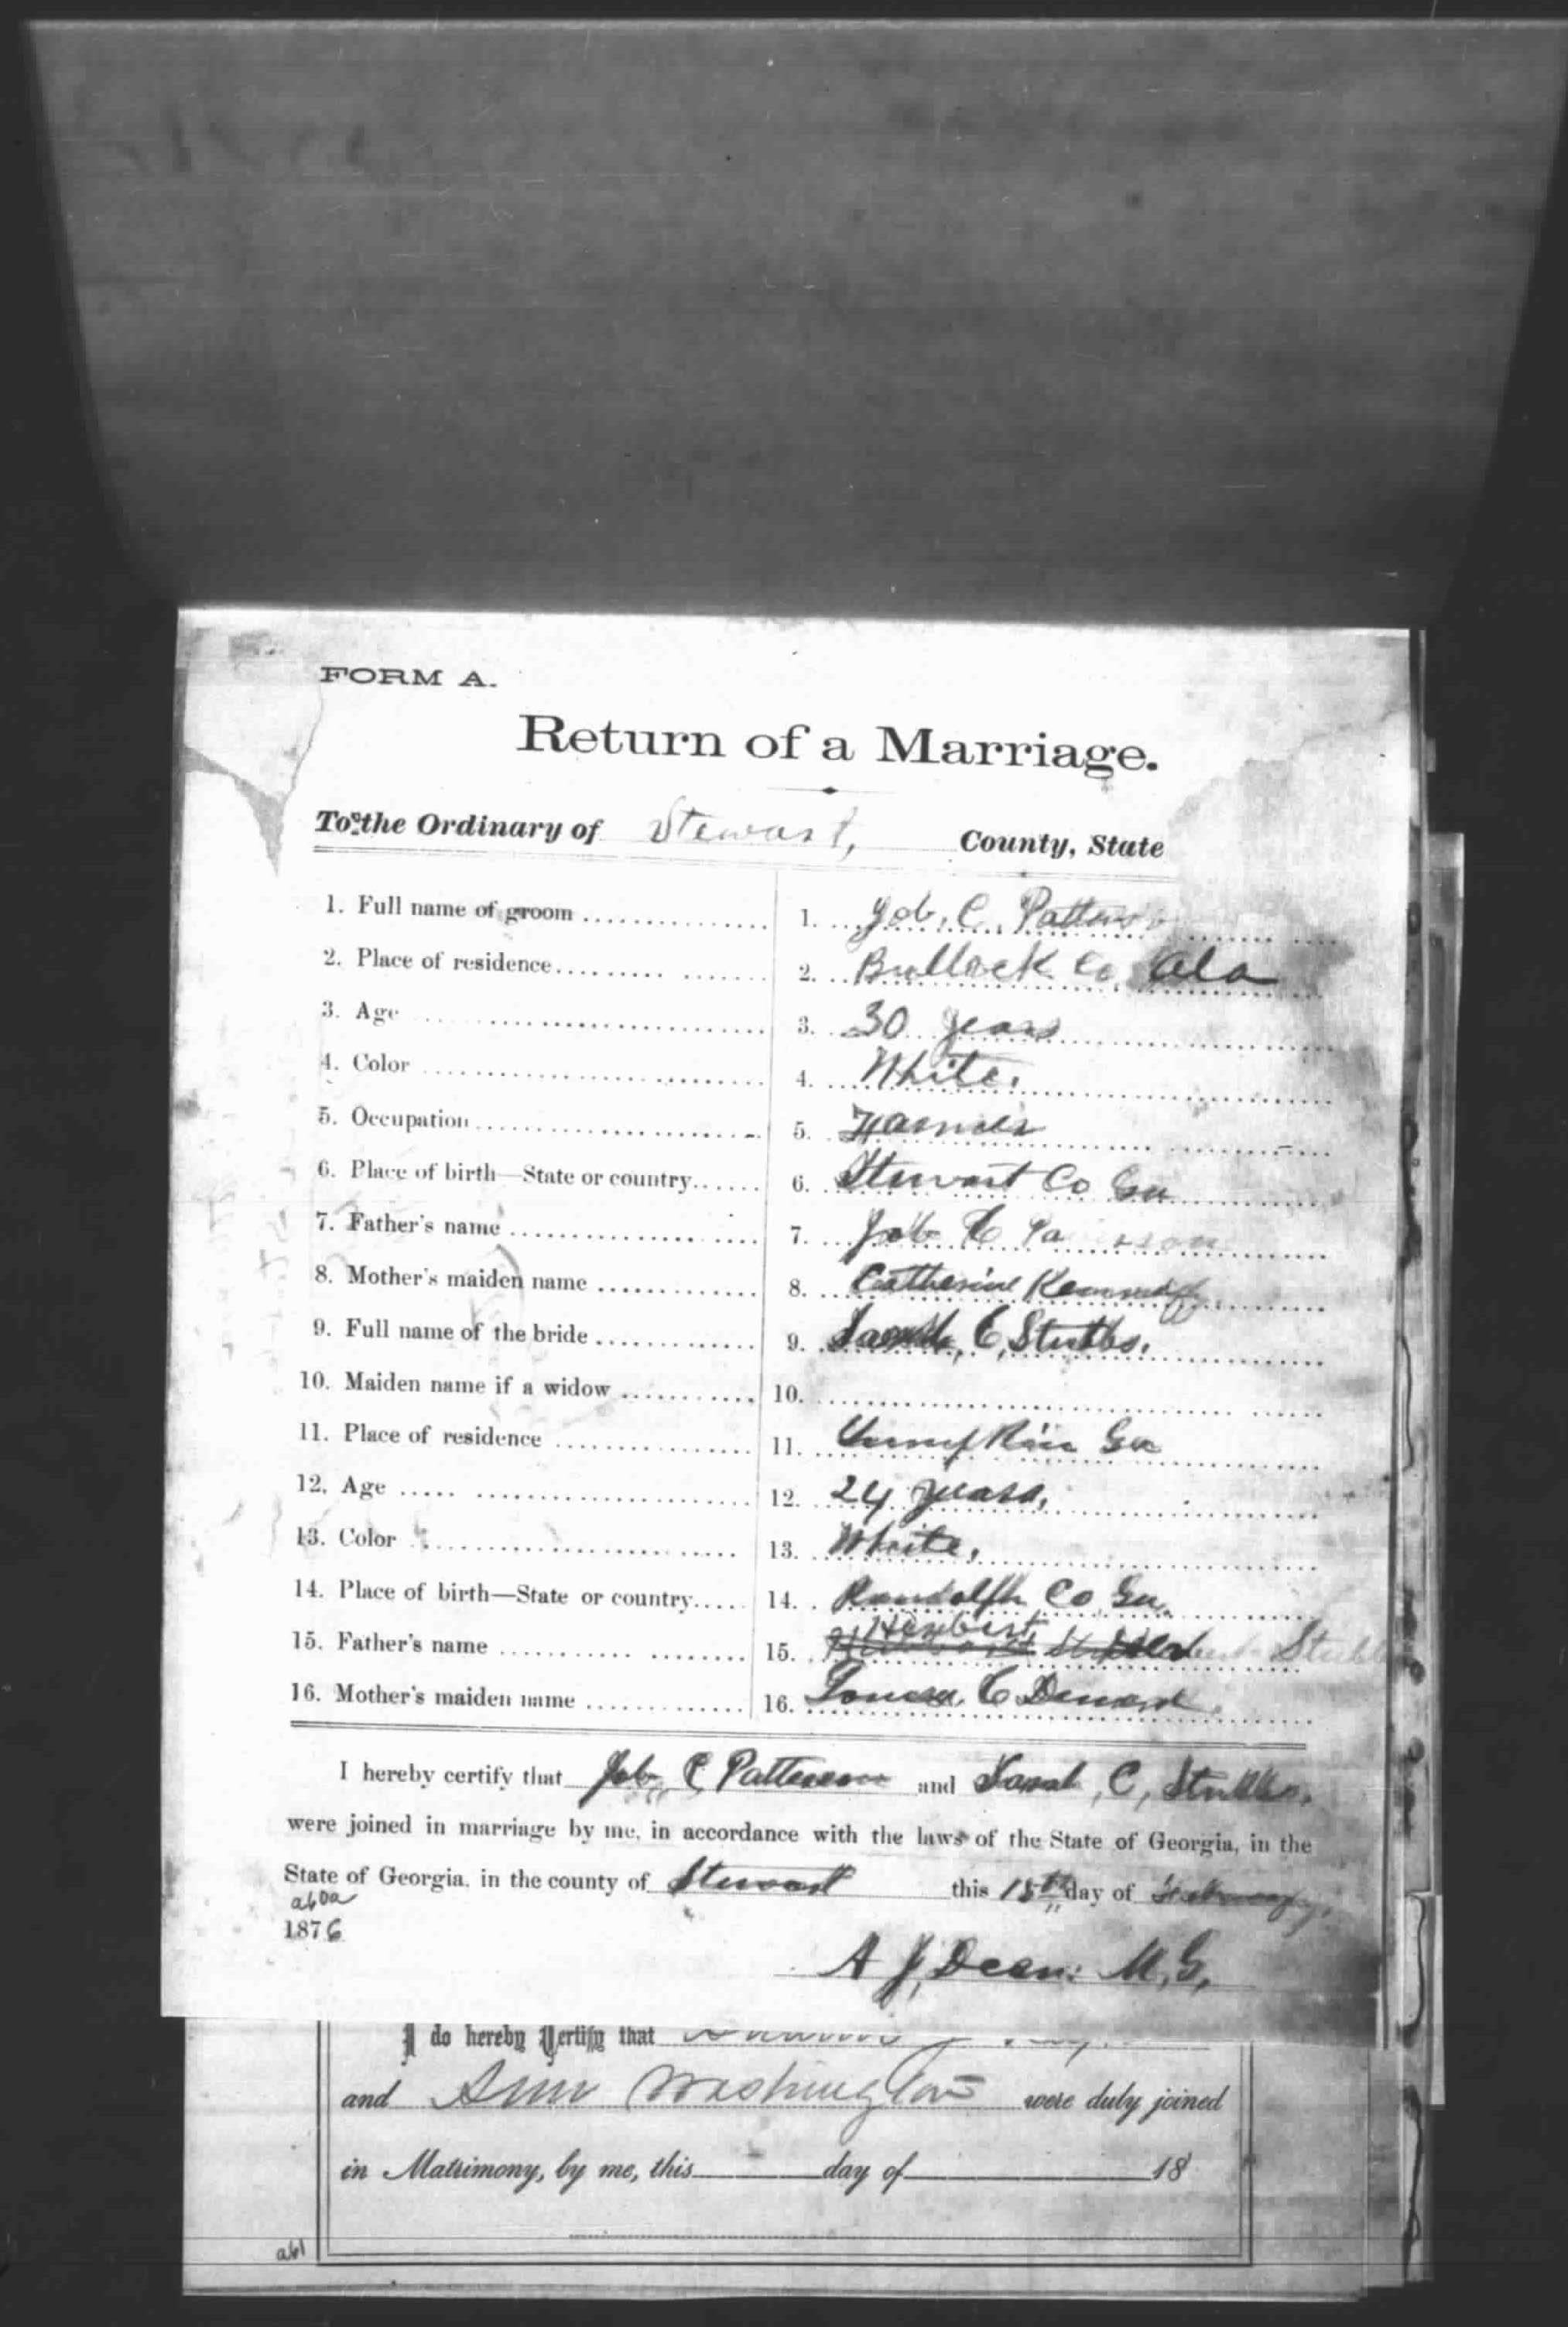 FORM A.
Return of a Marriage.
To the Ordinary of Stewart, County, State
1. Full name of groom 1. Job, C, Patterso
2. Place of residence 2. Bullock Co, Ala
3. Age 3. 30 years
4. Color 4. White.
5. Occupation 5. Farmer
6. Place of birth—State or country 6. Stewart Co Ga
7. Father's name 7. Job C Pa rson
8. Mother's maiden name 8. Catherine Kennedy
9. Full name of the bride 9. Sarah, C, Stubbs.
10. Maiden name if a widow 10.
11. Place of residence 11. Ga
12. Age 12. 24 years,
13. Color 13. White,
14. Place of birth—State or country 14. Randolph Co Ga.
Herbert
15. Father's name 15. Stubb
16. Mother's maiden name 16. Louisa C
I hereby certify that Job C Patterson and Sarah, C, Stubbs.
were joined in marriage by me, in accordance with the laws of the State of Georgia, in the
State of Georgia, in the county of Stewart this 15th day of February,
a60a
1876
A J, Dean: M, G,
I do hereby Certify that
and Ann Washington were duly joined
in Matrimony, by me, this day of 18
a61